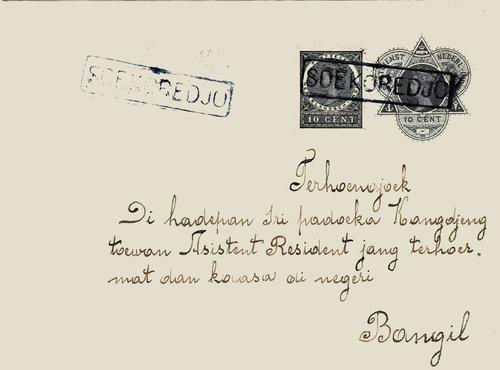 SOEKOREDJO
SOEKOREDJO
10 CENT
10 CENT
Terhoendjoek
Di hadepan Sri padoeka Kangdjeng
toewan Asistent Resident jang terhor.
mat dan koasa di negeri
Bangil